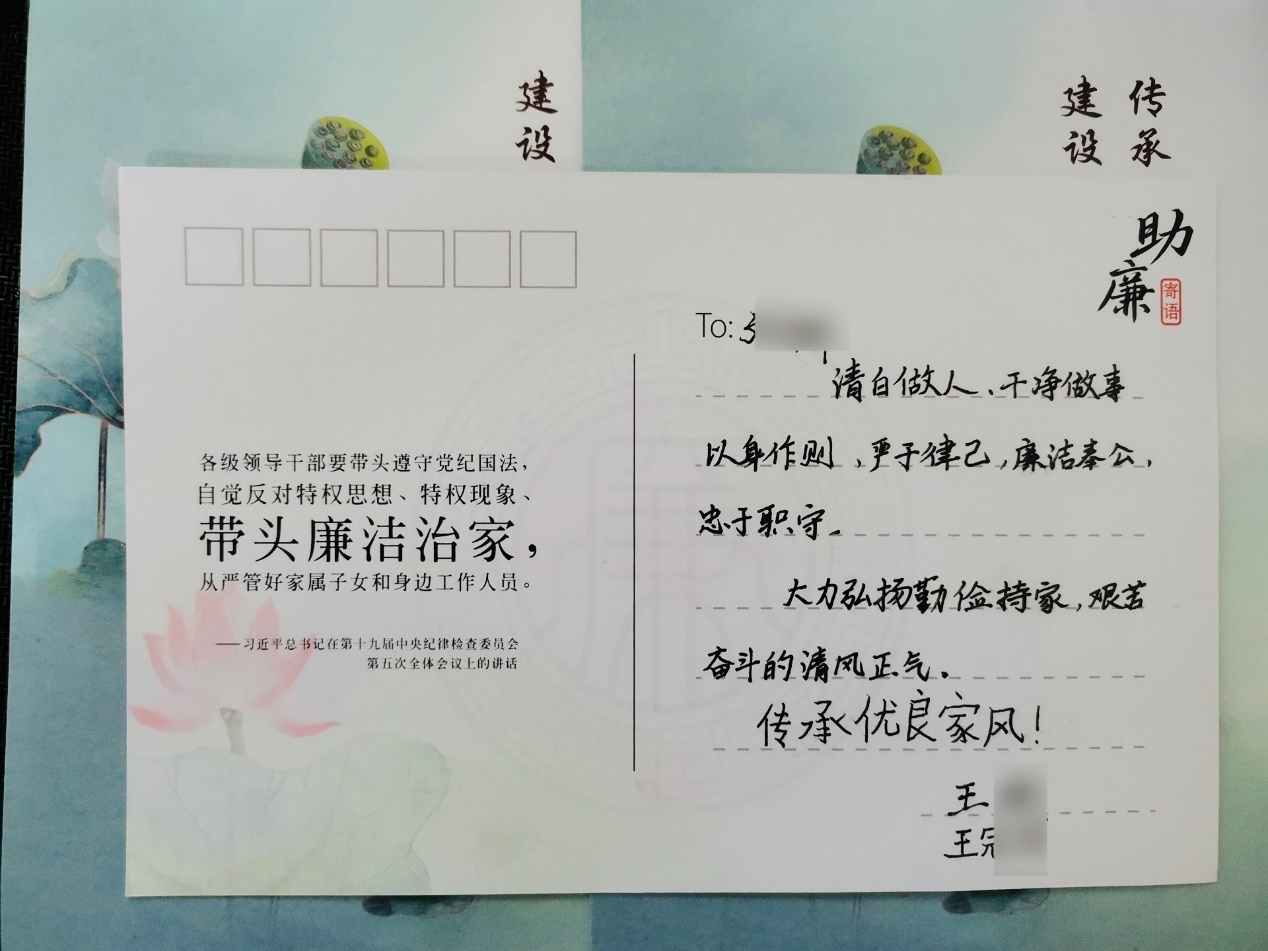 建设
传承
建设
助廉
寄语
各级领导干部要带头遵守党纪国法，
自觉反对特权思想、特权现象、
带头廉洁治家，
从严管好家属子女和身边工作人员。
——习近平总书记在第十九届中央纪律检查委员会
第五次全体会议上的讲话
To:
清白做人、干净做事
以身作则，严于律己，廉洁奉公，
忠于职守。
大力弘扬勤俭持家，艰苦
奋斗的清风正气。
传承优良家风！
王
王